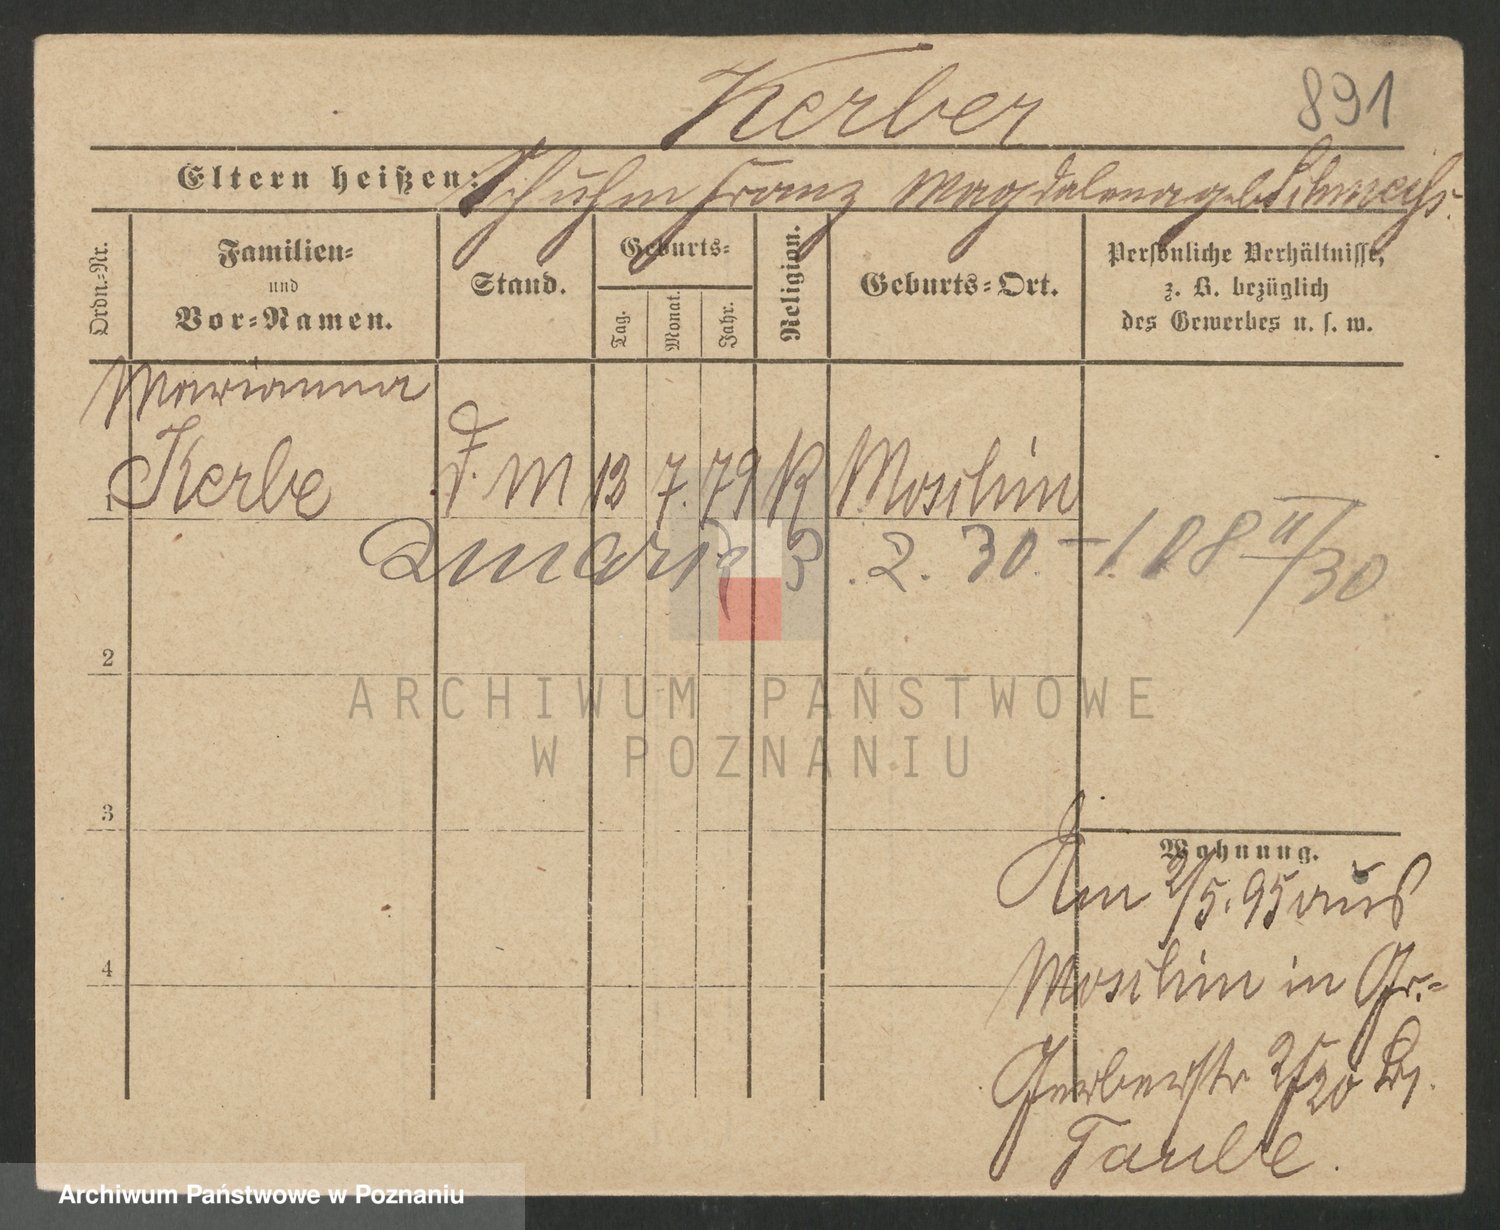 Kerber
891
Eltern heißen: Schuhm Franz Magdalena geb
Ordn.-Nr.
Familien-
und
Vor-Namen.
Stand.
Geburts-
Tag.
Monat.
Jahr.
Religion.
Geburts-Ort.
Persönliche Verhältnisse,
z. B. bezüglich
des Gewerbes u. s. w.
Marianna
1 Kerbe D. M 13 7. 79 K Moschin
zmarła 3. 2. 30 - 108 II/30
2
ARCHIWUM PAŃSTWOWE
W POZNANIU
3
Wohnung.
Am 2/5. 95 aus
4
Moschin in Gr.-
Gerberstr
Taube.
Archiwum Państwowe w Poznaniu